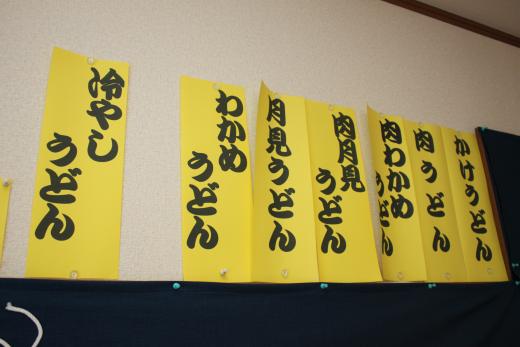 かけうどん
肉うどん
肉わかめ
うどん
肉月見
うどん
月見うどん
わかめ
うどん
冷やし
うどん